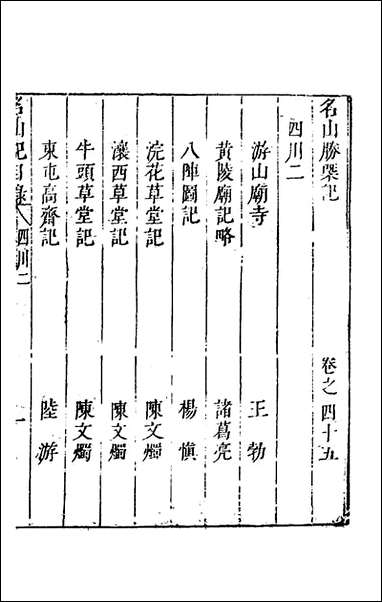 名山勝槩記　卷之四十五
四川二
游山廟寺　王勃
黃陵廟記略　諸葛亮
八陣圖記　楊愼
浣花草堂記　陳文燭
瀼西草堂記　陳文燭
牛頭草堂記　陳文燭
東屯高齋記　陸游
名山記目錄　四川二　一